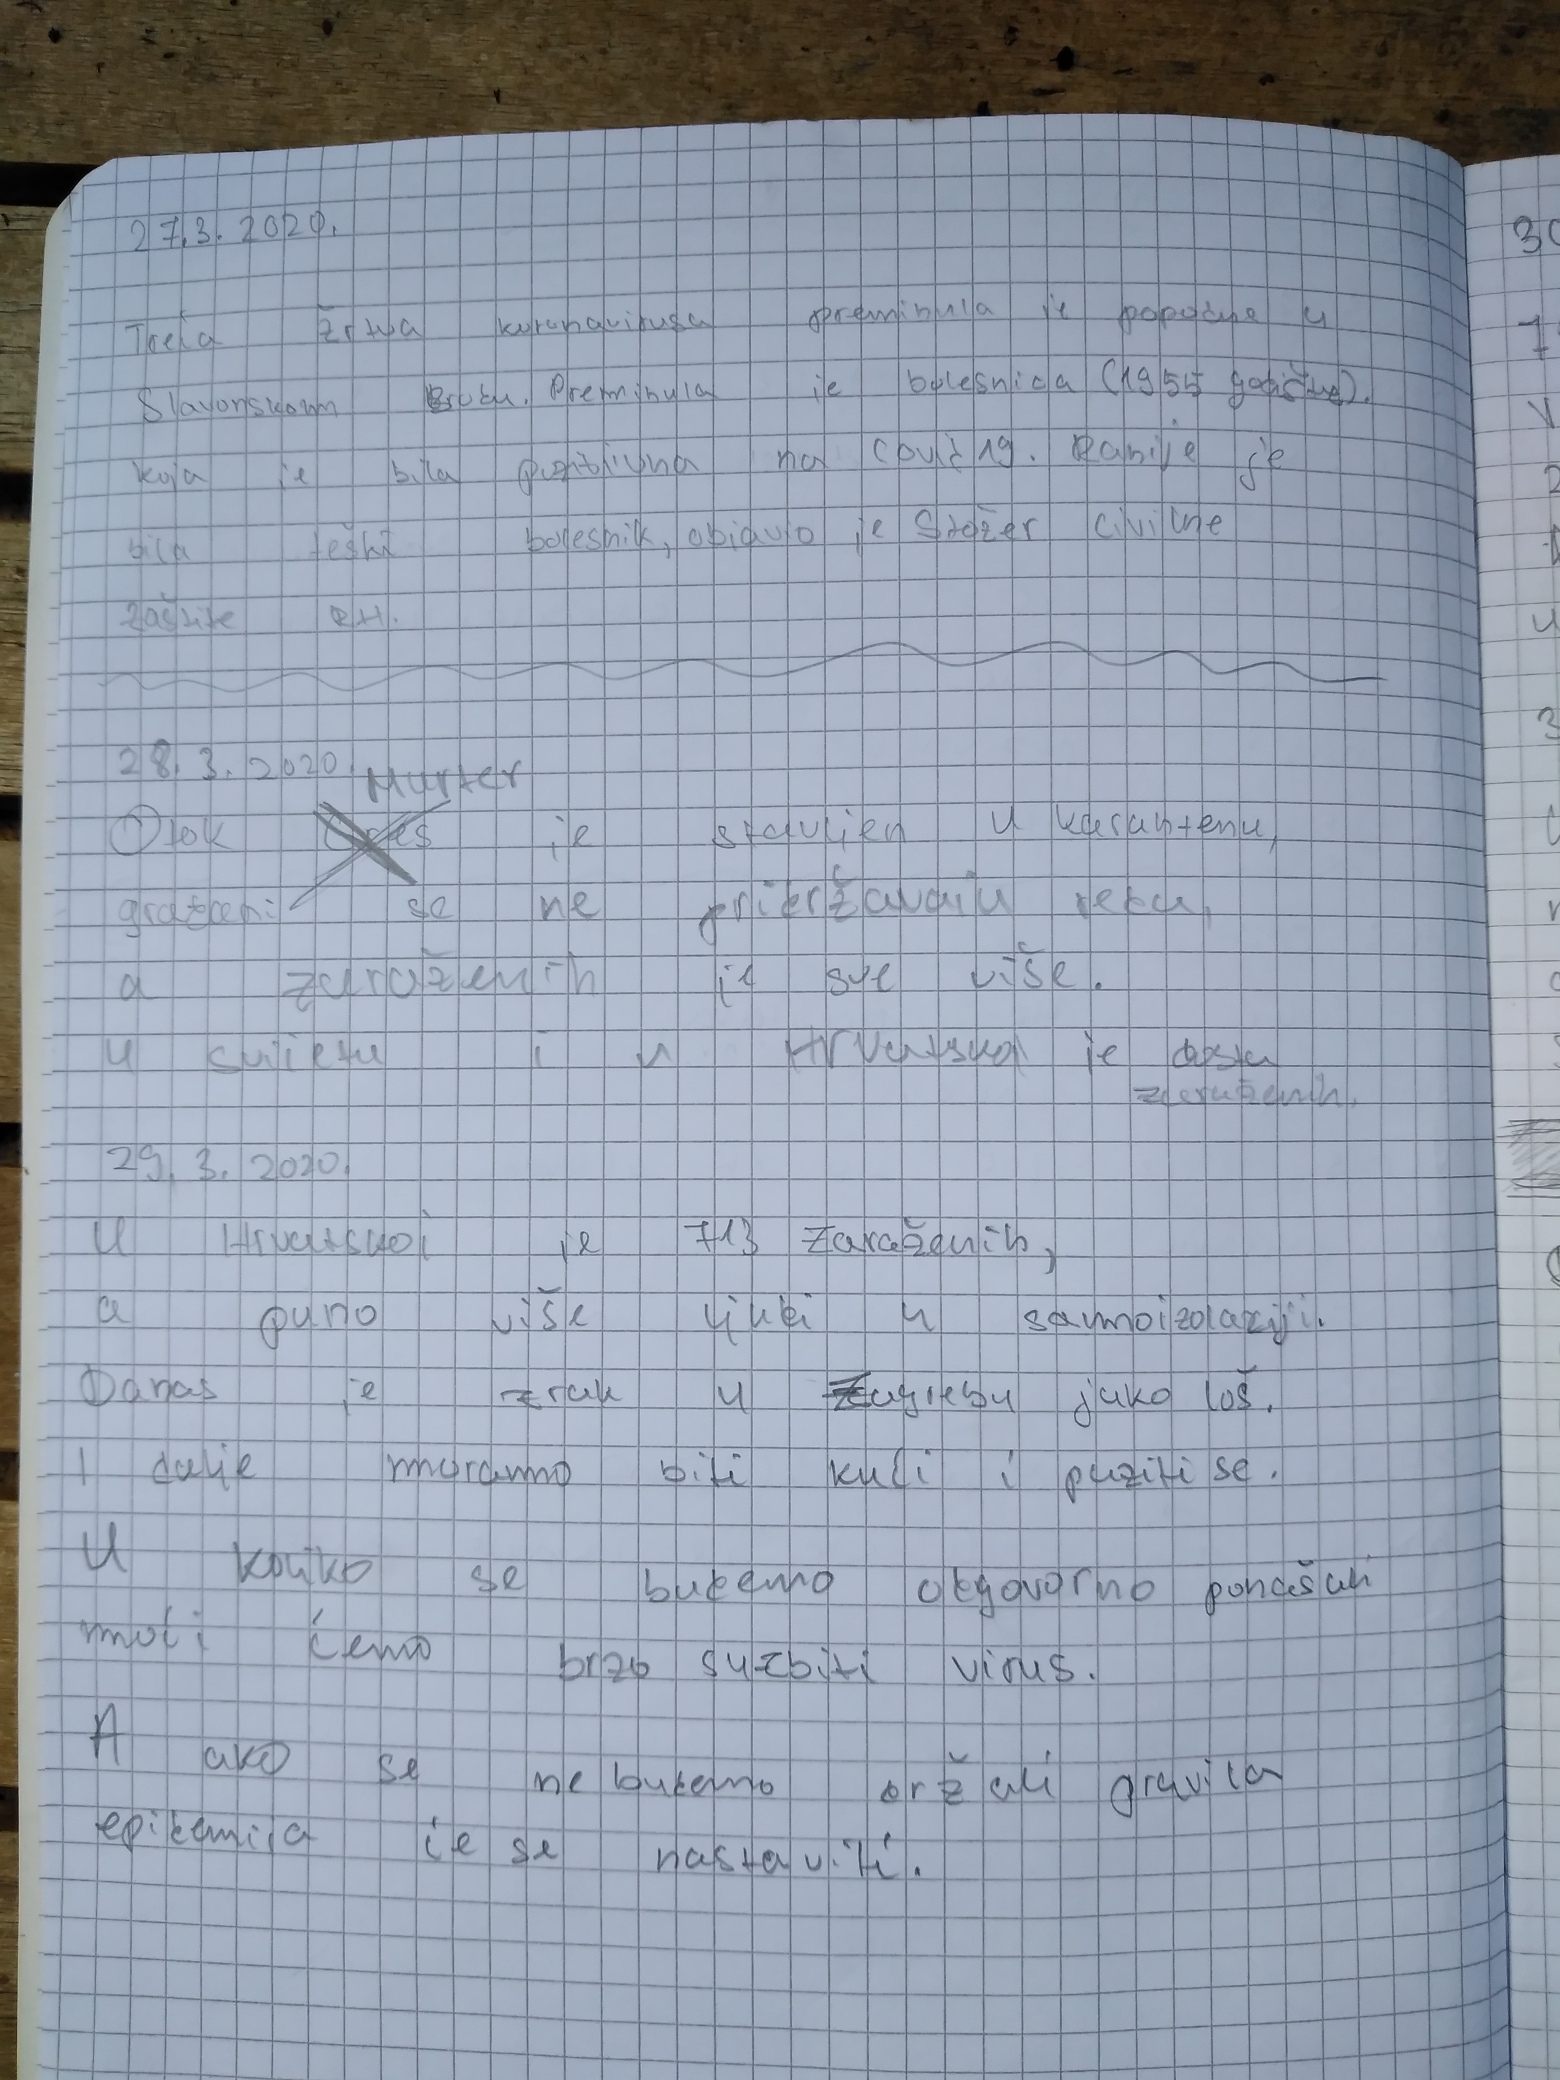 27.3.2020.
Treća žrtva koronavirusa preminula je popodne u
Slavonskom Brodu. Preminula je bolesnica (1955 godište).
koja je bila pozitivna na Covid 19. Ranije je
bila teški bolesnik, objavio je Stožer civilne
zaštite RH.
28.3.2020. Murter
Otok Cres je stavljen u karantenu,
građani se ne pridržavaju reda,
a zaraženih je sve više.
U svijetu i u Hrvatskoj je dosta
zaraženih.
29.3.2020.
U Hrvatskoj je 713 zaraženih,
a puno više ljudi u samoizolaciji.
Danas je zrak u Zagrebu jako loš.
I dalje moramo biti kući i paziti se.
U koliko se budemo odgovorno ponašali
moći ćemo brzo suzbiti virus.
A ako se ne budemo držali pravila
epidemija će se nastaviti.
30
7
V
2
u
3